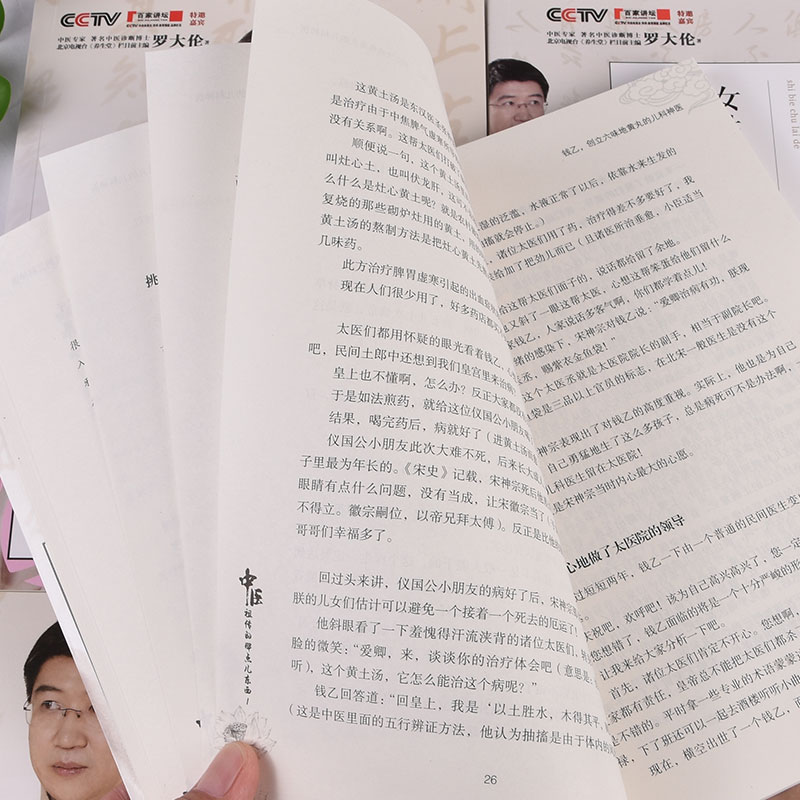 CCTV 百家讲坛 特邀嘉宾
中医专家 著名中医诊断博士
北京电视台《养生堂》栏目前主编 罗大伦 著
CCTV 百家讲坛 特邀嘉宾
中医专家 著名中医诊断博士
北京电视台《养生堂》栏目前主编 罗大伦 著
shi bie chu lai de
挑
这黄土汤是东汉医圣
是治疗由于中焦脾气虚寒
没有关系啊。这帮太医们打
顺便说一句，这个黄土汤
叫灶心土，也叫伏龙肝，这可
么什么是灶心黄土呢？就是农村
复烧的那些砌炉灶用的黄土，
黄土汤的熬制方法是把灶心黄土
几味药。
此方治疗脾胃虚寒引起的出血
现在人们很少用了，好多药店都
太医们都用怀疑的眼光看着钱乙，
吧，民间土郎中还想到我们皇宫里来治病
皇上也不懂啊，怎么办？反正大家都
于是如法煎药，就给这位仪国公小朋友
结果，喝完药后，病就好了（进黄土汤
仪国公小朋友此次大难不死，后来长大
子里最为年长的。《宋史》记载，宋神宗死后
眼睛有点什么问题，没有当成，让宋徽宗当了
不得立。徽宗嗣位，以帝兄拜太傅）。反正是比他
哥哥们幸福多了。
回过头来讲，仪国公小朋友的病好了后，宋神宗
朕的儿女们估计可以避免一个接着一个死去的厄运了！
他斜眼看了一下羞愧得汗流浃背的诸位太医们，
脸的微笑：“爱卿，来，谈谈你的治疗体会吧（意思是
听），这个黄土汤，它怎么能治这个病呢？”
钱乙回答道：“回皇上，我是‘以土胜水，木得其平，
（这是中医里面的五行辨证方法，他认为抽搐是由于体内的
中医祖传的那点儿东西1
26
钱乙，创立六味地黄丸的儿科神医
湿的泛滥，水液正常了以后，依靠水来生发的
搐就会停止。）
诸位太医们用了药，治疗得差不多要好了，我
给加了把劲儿而已（且诸医所治垂愈，小臣适当
给这帮太医们面子的，说话都给留了余地。
又斜了一眼这帮太医，心想这帮笨蛋给他们留什么
钱乙，人家说话多客气啊，你们都学着点儿！
绪的感染下，宋神宗对钱乙说：“爱卿治病有功，朕现
丞，赐紫衣金鱼袋！”
这个太医丞就是太医院院长的副手，相当于副院长吧。
袋是三品以上官员的标志，在北宋一般医生是没有这个
神宗表现出了对钱乙的高度重视。实际上，他也是为自己
自己勇猛地生了这么多孩子，总是病死可不是办法啊，
儿科医生留在太医院！
是宋神宗当时内心最大的心愿。
心地做了太医院的领导
过短短两年，钱乙一下由一个普通的民间医生变
庆祝吧，欢呼吧！该为自己高兴高兴了，您一定
您想错了，钱乙面临的将是一个十分严峻的形
让我来给大家分析一下吧。
首先，诸位太医们肯定不开心。您想啊，
家都有责任，皇帝总不能把太医们都杀
是不错的。平时拿一些专业的术语蒙蒙
禄，下了班还可以一起去酒楼听听小曲
现在，横空出世了一个钱乙，